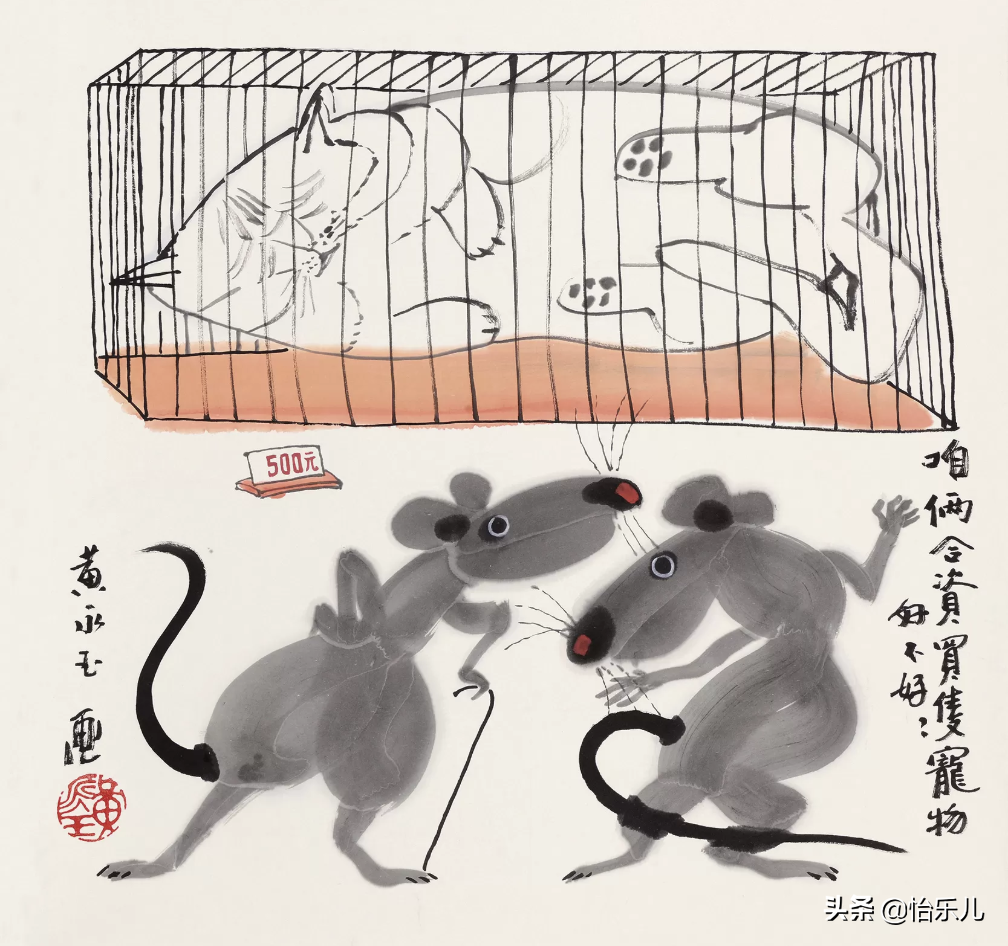 500元
咱倆合資買隻寵物
好不好?
黄永玉
画
头条 @怡乐儿